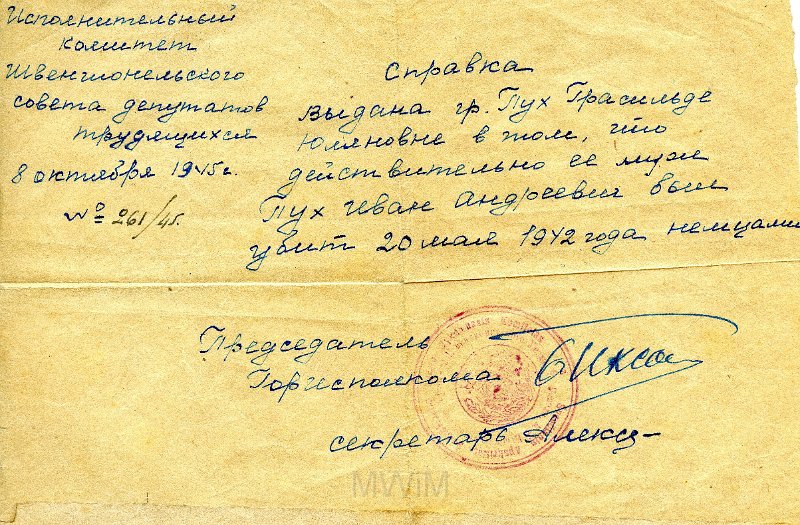 Исполнительный
комитет
Швенчионельского
совета депутатов
трудящихся
8 октября 1945г.
№ 261/45.
Справка
Выдана гр. Пух Грасильде
Юляновне в том, что
действительно ее муж
Пух Иван Андреевич был
убит 20 мая 1942 года немцами
Председатель
Горисполкома
секретарь Алекс
MWiM